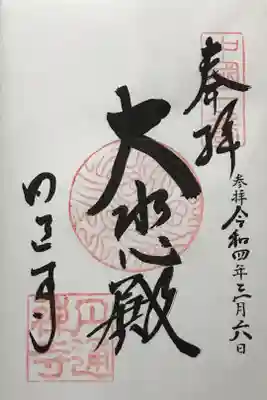 奉拝
参拝 令和四年三月六日
大悲殿
円通寺